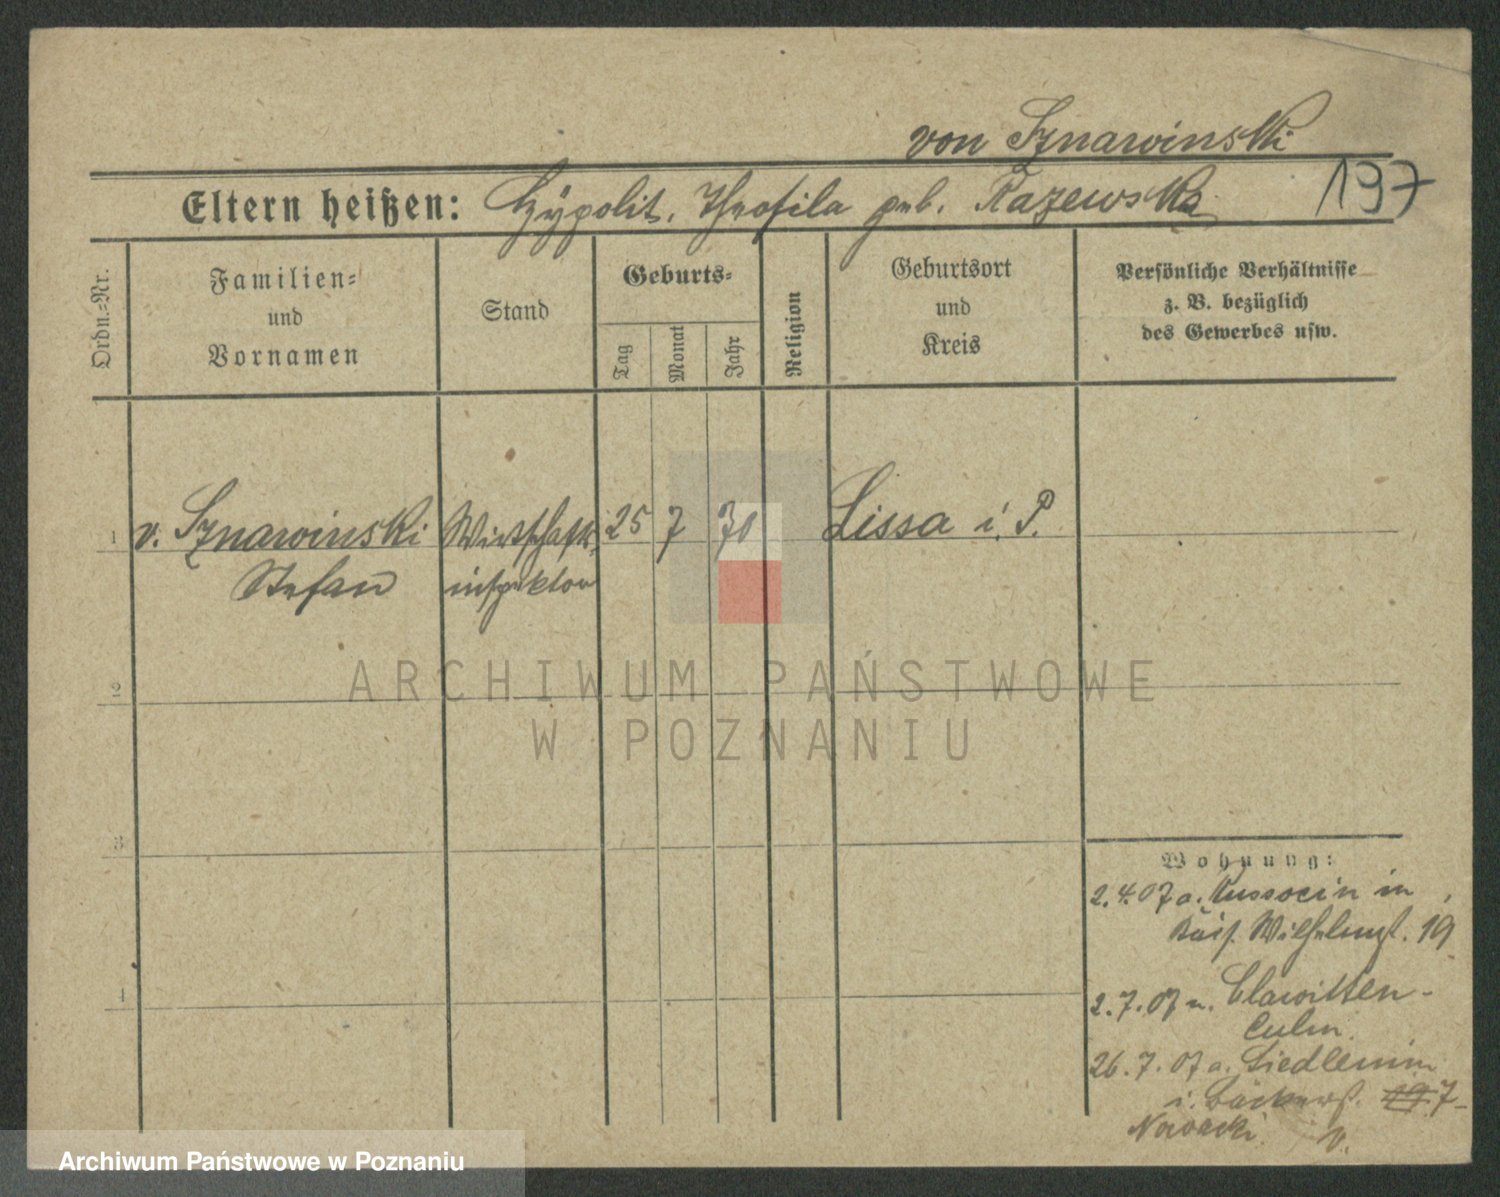 von Sznawinski
Eltern heißen: Hÿpolit. Theofila geb. Razewska
197
Ordn.-Nr.
Familien-
und
Vornamen
Stand
Geburts-
Tag
Monat
Jahr
Religion
Geburtsort
und
Kreis
Persönliche Verhältnisse
z. B. bezüglich
des Gewerbes usw.
1 v. Sznawinski Wirtschafts- 25 7 70 Lissa i. P.
Stefan inspektor
2
3
4
Wohnung:
2.4.07 a. Kussocin in
Kais. Wilhelmst. 19
2.7.07 n. Clawitten-
Culm.
26.7.07 a. Siedlemin
i. Bäckerst. 7
Nowacki
v.
ARCHIWUM PAŃSTWOWE
W POZNANIU
Archiwum Państwowe w Poznaniu